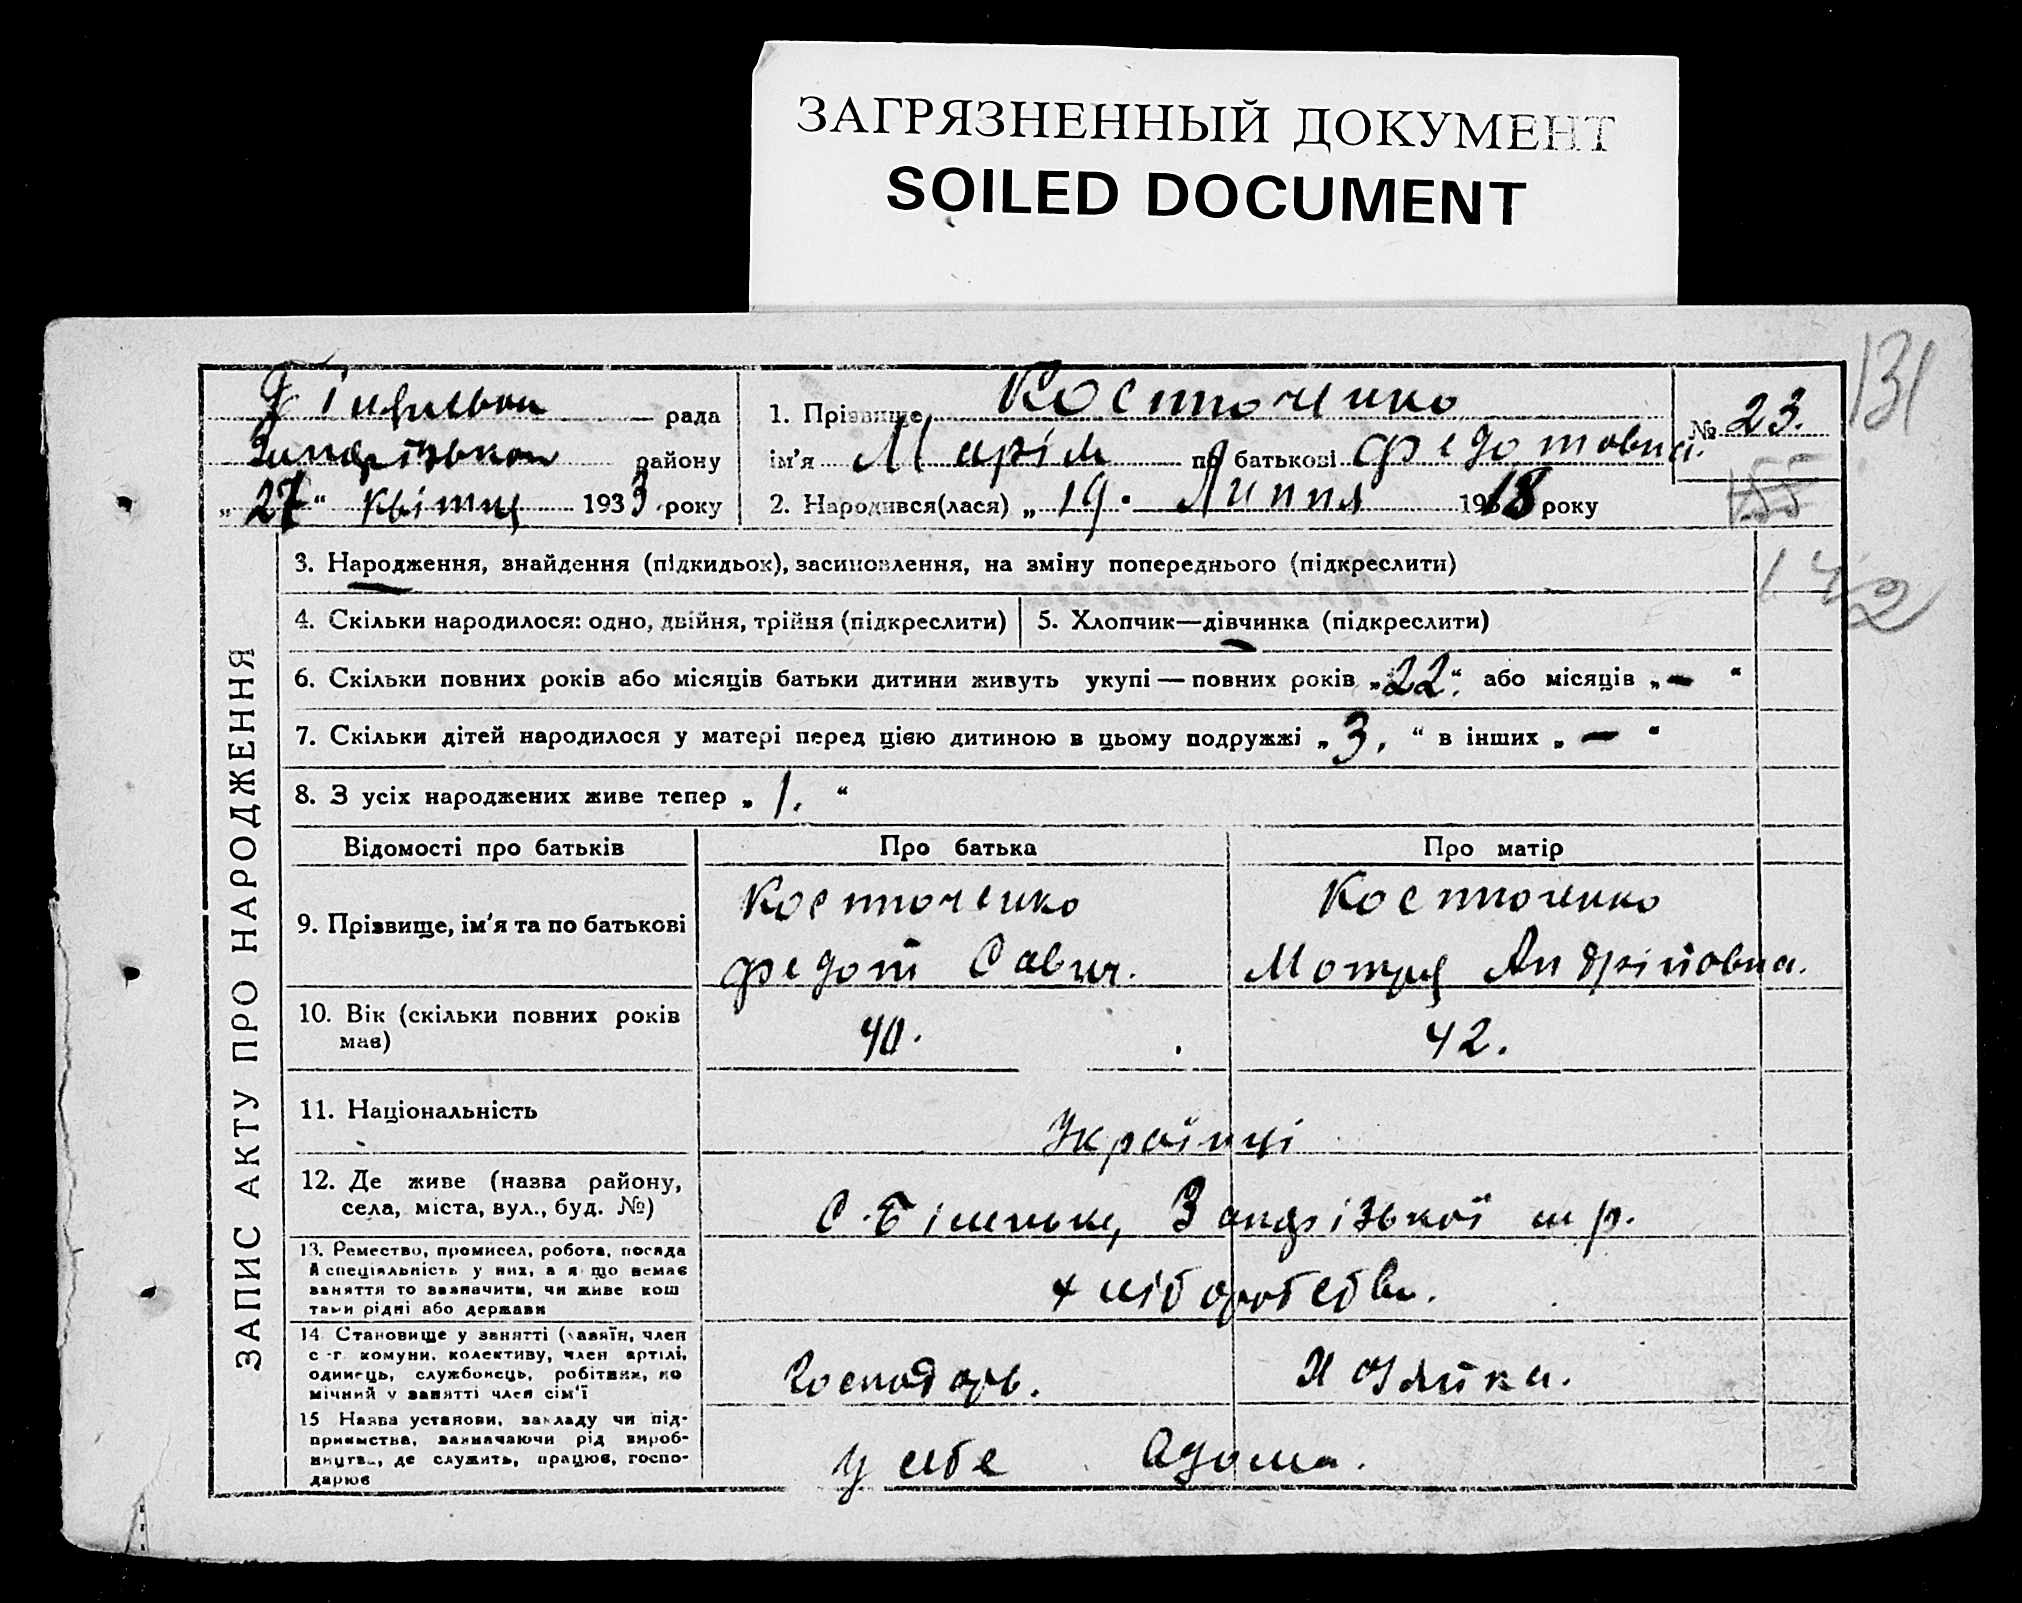 ЗАГРЯЗНЕННЫЙ ДОКУМЕНТ
SOILED DOCUMENT
131
рада
району
„27“ квітня 1933 року
1. Прізвище Костюченко
ім'я Марія по батькові Федотовна.
2. Народився(лася) „19. Липня 1918 року
№ 23.
155
142
ЗАПИС АКТУ ПРО НАРОДЖЕННЯ
3. Народження, знайдення (підкидьок), засиновлення, на зміну попереднього (підкреслити)
4. Скільки народилося: одно, двійня, трійня (підкреслити)
5. Хлопчик—дівчинка (підкреслити)
6. Скільки повних років або місяців батьки дитини живуть укупі — повних років „22“. або місяців „—“
7. Скільки дітей народилося у матері перед цією дитиною в цьому подружжі „3.“ в інших „—“
8. З усіх народжених живе тепер „1.“
Відомості про батьків
Про батька
Про матір
9. Прізвище, ім'я та по батькові
Костюченко
Федот Савич.
Костюченко
Мотря Андрійовна.
10. Вік (скільки повних років
має)
40.
42.
11. Національність
Українці
12. Де живе (назва району,
села, міста, вул., буд. №)
С.
р.
13. Ремество, промисел, робота, посада
й спеціяльність у них, а якщо немає
заняття то зазначити, чи живе кош
тами рідні або держави
хліборобство.
14. Становище у занятті (хазяїн, член
с.-г. комуни, колективу, член артілі,
одинець, службовець, робітник, по
мічний у занятті член сім'ї
Господарь.
Хозяйка.
15 Назва установи, закладу чи під-
приємства, зазначаючи рід вироб-
ництва, де служить, працює, госпо-
дарює
у себе